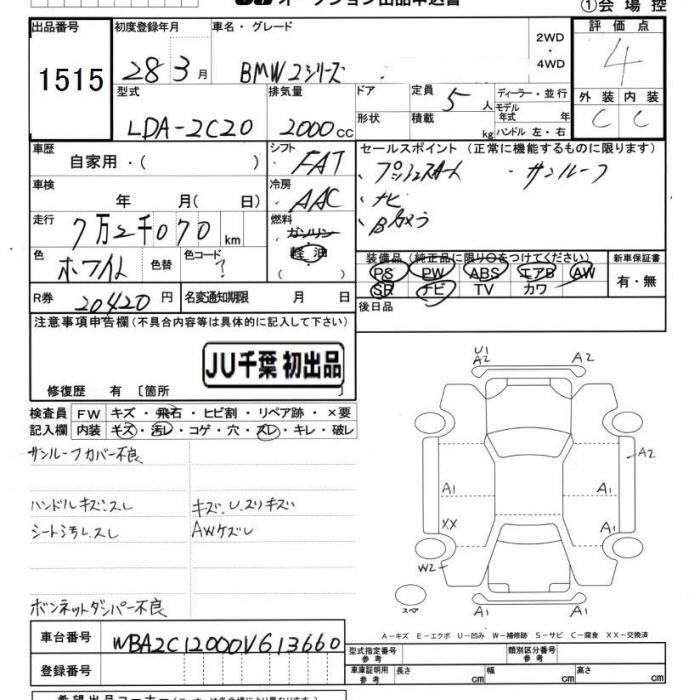 ①会場控
出品番号 初度登録年月 車名・グレード 評価点
1515 28 3月 BMW 2シリーズ 2WD・4WD 4
型式 排気量 ドア 定員 5人 ディーラー・並行 外装 内装
LDA-2C20 2000cc 形状 積載 kg モデル年式 年 ハンドル 左・右 C C
車歴 シフト セールスポイント(正常に機能するものに限ります)
自家用・( ) FAT ・プッシュスタート ・サンルーフ
車検 冷房 ・ナビ
年 月( 日) AAC ・Bカメラ
走行 燃料
7万2千070km ガソリン
色 ホワイト 色替 色コード ? 軽油 ( )
装備品(純正品に限り○をつけてください) 新車保証書
PS PW ABS エアB AW 有・無
SR ナビ TV カワ
R券 20420円 名変通知期限 月 日 後日品
注意事項申告欄(不具合内容等は具体的に記入して下さい)
JU千葉 初出品
修復歴 有〔箇所 〕
検査員 FW キズ・飛石・ヒビ割・リペア跡・×要
記入欄 内装 キズ・汚レ・コゲ・穴・スレ・キレ・破レ
サンルーフカバー不良
ハンドルキズ、スレ キズ、U、スリキズ
シート汚レ、スレ AWケズレ
ボンネットダンパー不良
U1
A2 A2
A2
A1 A1
XX A1
W2
A1 A1
スペア
A-キズ E-エクボ U-凹み W-補修跡 S-サビ C-腐食 XX-交換済
車台番号 WBA2C12000V613660 型式指定番号 参考 類別区分番号 参考
登録番号 車庫証明用 参考 長さ cm 幅 cm 高さ cm